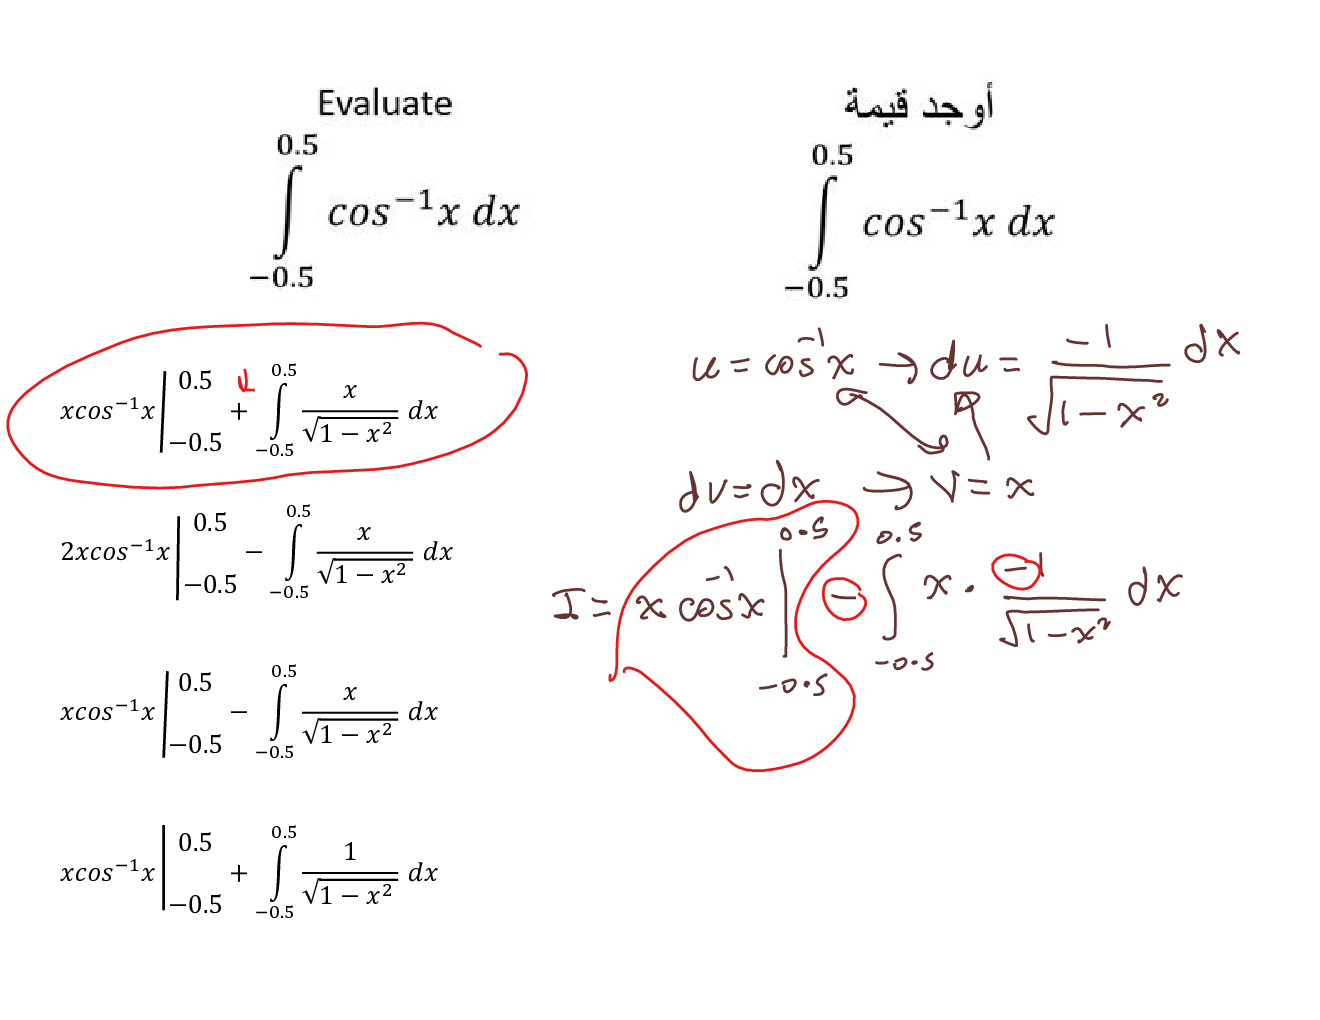 Evaluate
∫_{-0.5}^{0.5} cos⁻¹x dx
أوجد قيمة
∫_{-0.5}^{0.5} cos⁻¹x dx
xcos⁻¹x |_{-0.5}^{0.5} + ∫_{-0.5}^{0.5} x/√(1 − x²) dx
2xcos⁻¹x |_{-0.5}^{0.5} − ∫_{-0.5}^{0.5} x/√(1 − x²) dx
xcos⁻¹x |_{-0.5}^{0.5} − ∫_{-0.5}^{0.5} x/√(1 − x²) dx
xcos⁻¹x |_{-0.5}^{0.5} + ∫_{-0.5}^{0.5} 1/√(1 − x²) dx
u = cos⁻¹x → du = -1/√(1-x²) dx
dv = dx → v = x
I = x cos⁻¹x |_{-0.5}^{0.5} − ∫_{-0.5}^{0.5} x · -1/√(1-x²) dx